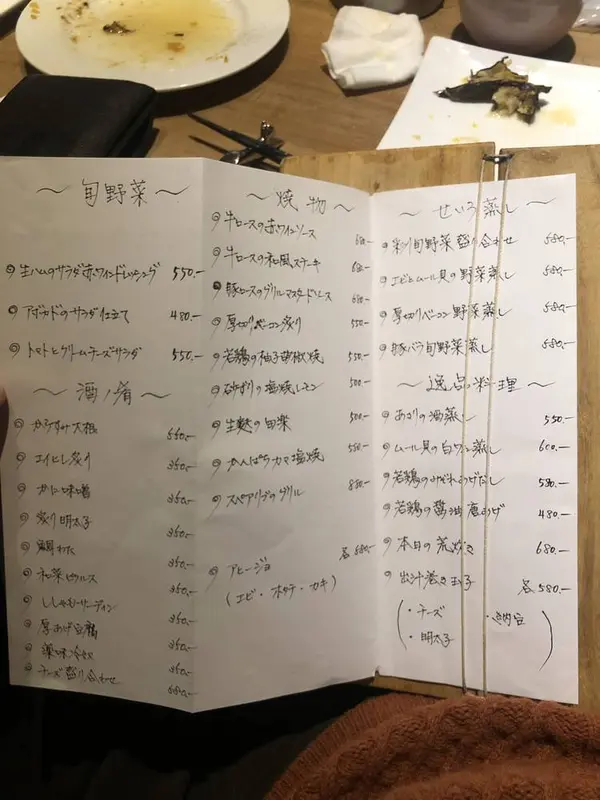 〜 旬野菜 〜
◎ 生ハムのサラダ赤ワインドレッシング 550.-
◎ アボカドのサラダ仕立て 480.-
◎ トマトとクリームチーズサラダ 550.-
〜 酒ノ肴 〜
◎ からすみ大根 550.-
◎ エイヒレ炙り 350.-
◎ かに味噌 350.-
◎ 炙り明太子 350.-
◎ 鯛わた 350.-
◎ 和菜ピクルス 350.-
◎ ししゃもサーディン 350.-
◎ 厚あげ豆腐 350.-
◎ 薬味冷奴 350.-
◎ チーズ盛り合わせ 680.-
〜 焼物 〜
◎ 牛ロースの赤ワインソース 680.-
◎ 牛ロースの和風ステーキ 680.-
◎ 豚ロースのグリルマスタードソース 680.-
◎ 厚切りベーコン炙り 550.-
◎ 若鶏の柚子胡椒焼 550.-
◎ 砂ずりの塩焼レモン 500.-
◎ 生麩の田楽 500.-
◎ かんぱちカマ塩焼 550.-
◎ スペアリブのグリル 880.-
◎ アヒージョ 各 880.-
(エビ・ホタテ・カキ)
〜 せいろ蒸し 〜
◎ 彩り旬野菜盛り合わせ 580.-
◎ エビとムール貝の野菜蒸し 580.-
◎ 厚切りベーコン野菜蒸し 580.-
◎ 豚バラ旬野菜蒸し 580.-
〜 逸品料理 〜
◎ あさりの酒蒸し 550.-
◎ ムール貝の白ワイン蒸し 600.-
◎ 若鶏のみぞれあげだし 580.-
◎ 若鶏の醤油唐あげ 480.-
◎ 本日の荒炊き 680.-
◎ 出汁巻き玉子 各 580.-
(・チーズ ・納豆
・明太子)